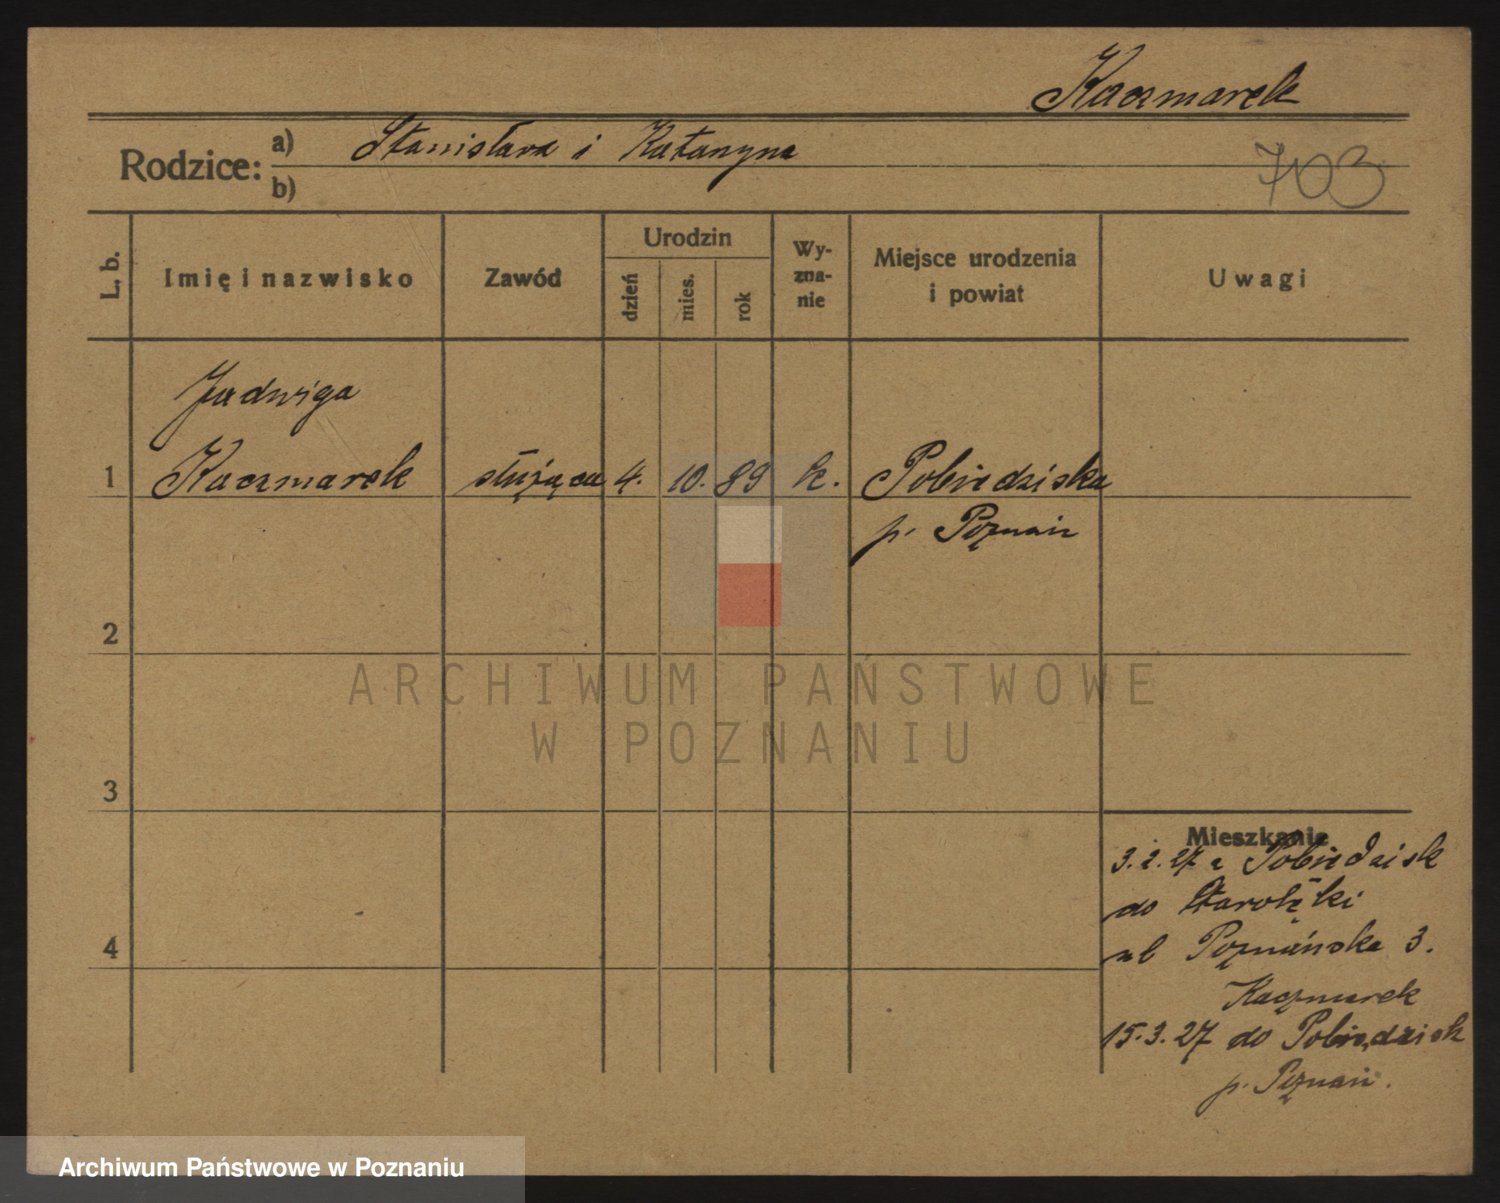 Kaczmarek
Rodzice: a) Stanisława i Katarzyna
b)
703
L. b.
Imię i nazwisko
Zawód
Urodzin
dzień
mies.
rok
Wy-
zna-
nie
Miejsce urodzenia
i powiat
Uwagi
Jadwiga
1 Kaczmarek służąca 4. 10. 89 k. Pobiedziska
p. Poznań
2
3
4
Mieszkanie
3.2.27 z Pobiedzisk
do Starołęki
ul Poznańska 3.
Kaczmarek
15.3.27 do Pobiedzisk
p. Poznań.
ARCHIWUM PAŃSTWOWE
W POZNANIU
Archiwum Państwowe w Poznaniu